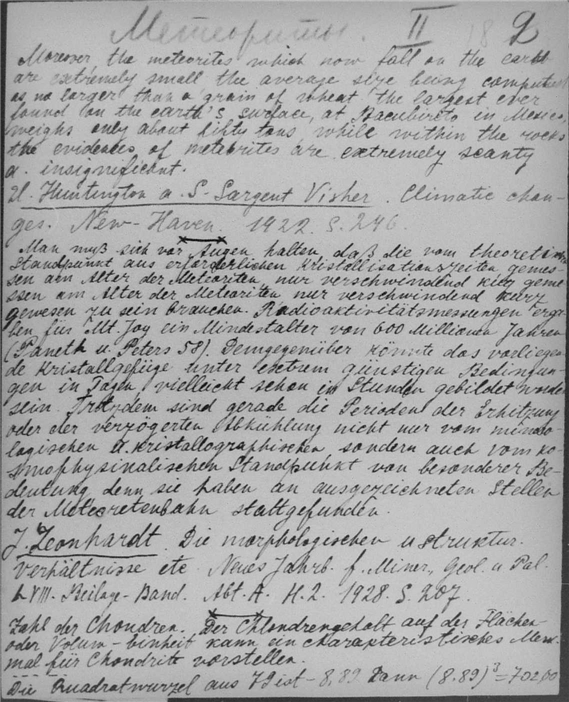 Метеориты. II 2
Moreover the meteorites which now fall on the earth
are extremely small the average size being computed
as no larger than a grain of wheat the largest ever
found on the earth's surface, at Bacubireto in Mexico,
weighs only about fifty tons while within the rocks
the evidences of meteorites are extremely scanty
a. insignificant.
El. Huntington a S. Sargent Visher. Climatic chan-
ges. New-Haven. 1922. S. 246.
Man muß sich vor Augen halten, daß die vom theoretischen
Standpunkt aus erforderlichen Kristallisationszeiten gemes-
sen am Alter der Meteoriten, nur verschwindend kurz geme
ssen am Alter der Meteoriten nur verschwindend kurz
gewesen zu sein brauchen. Radioaktivitätsmessungen erga-
ben für Mt. Joy ein Mindestalter von 600 Millionen Jahren
(Paneth u. Peters 58). Demgegenüber könnte das vorliegen-
de Kristallgefüge unter extrem günstigen Bedingun-
gen in Tagen vielleicht schon in Stunden gebildet worden
sein. Trotzdem sind gerade die Perioden der Erhitzung
oder der verzögerten Abkühlung nicht nur vom minera-
logischen u. kristallographischen, sondern auch vom ko-
smophysikalischen Standpunkt von besonderer Be-
deutung denn sie haben an ausgezeichneten Stellen
der Meteoretenbahn stattgefunden.
J. Leonhardt. Die morphologischen u struktur.
Verhältnisse etc Neues Jahrb. f. Miner, Geol. u Pal.
LVIII. Beilage-Band. Abt. A. H. 2. 1928. S. 207.
Zahl der Chondren. Der Chlondrengehalt auf der Flächen
oder Volum-einheit kann ein charapteristisches Merk-
mal für Chondrite vorstellen.
Die Quadratwurzel aus 79 ist - 8.89 Dann (8.89)³ =